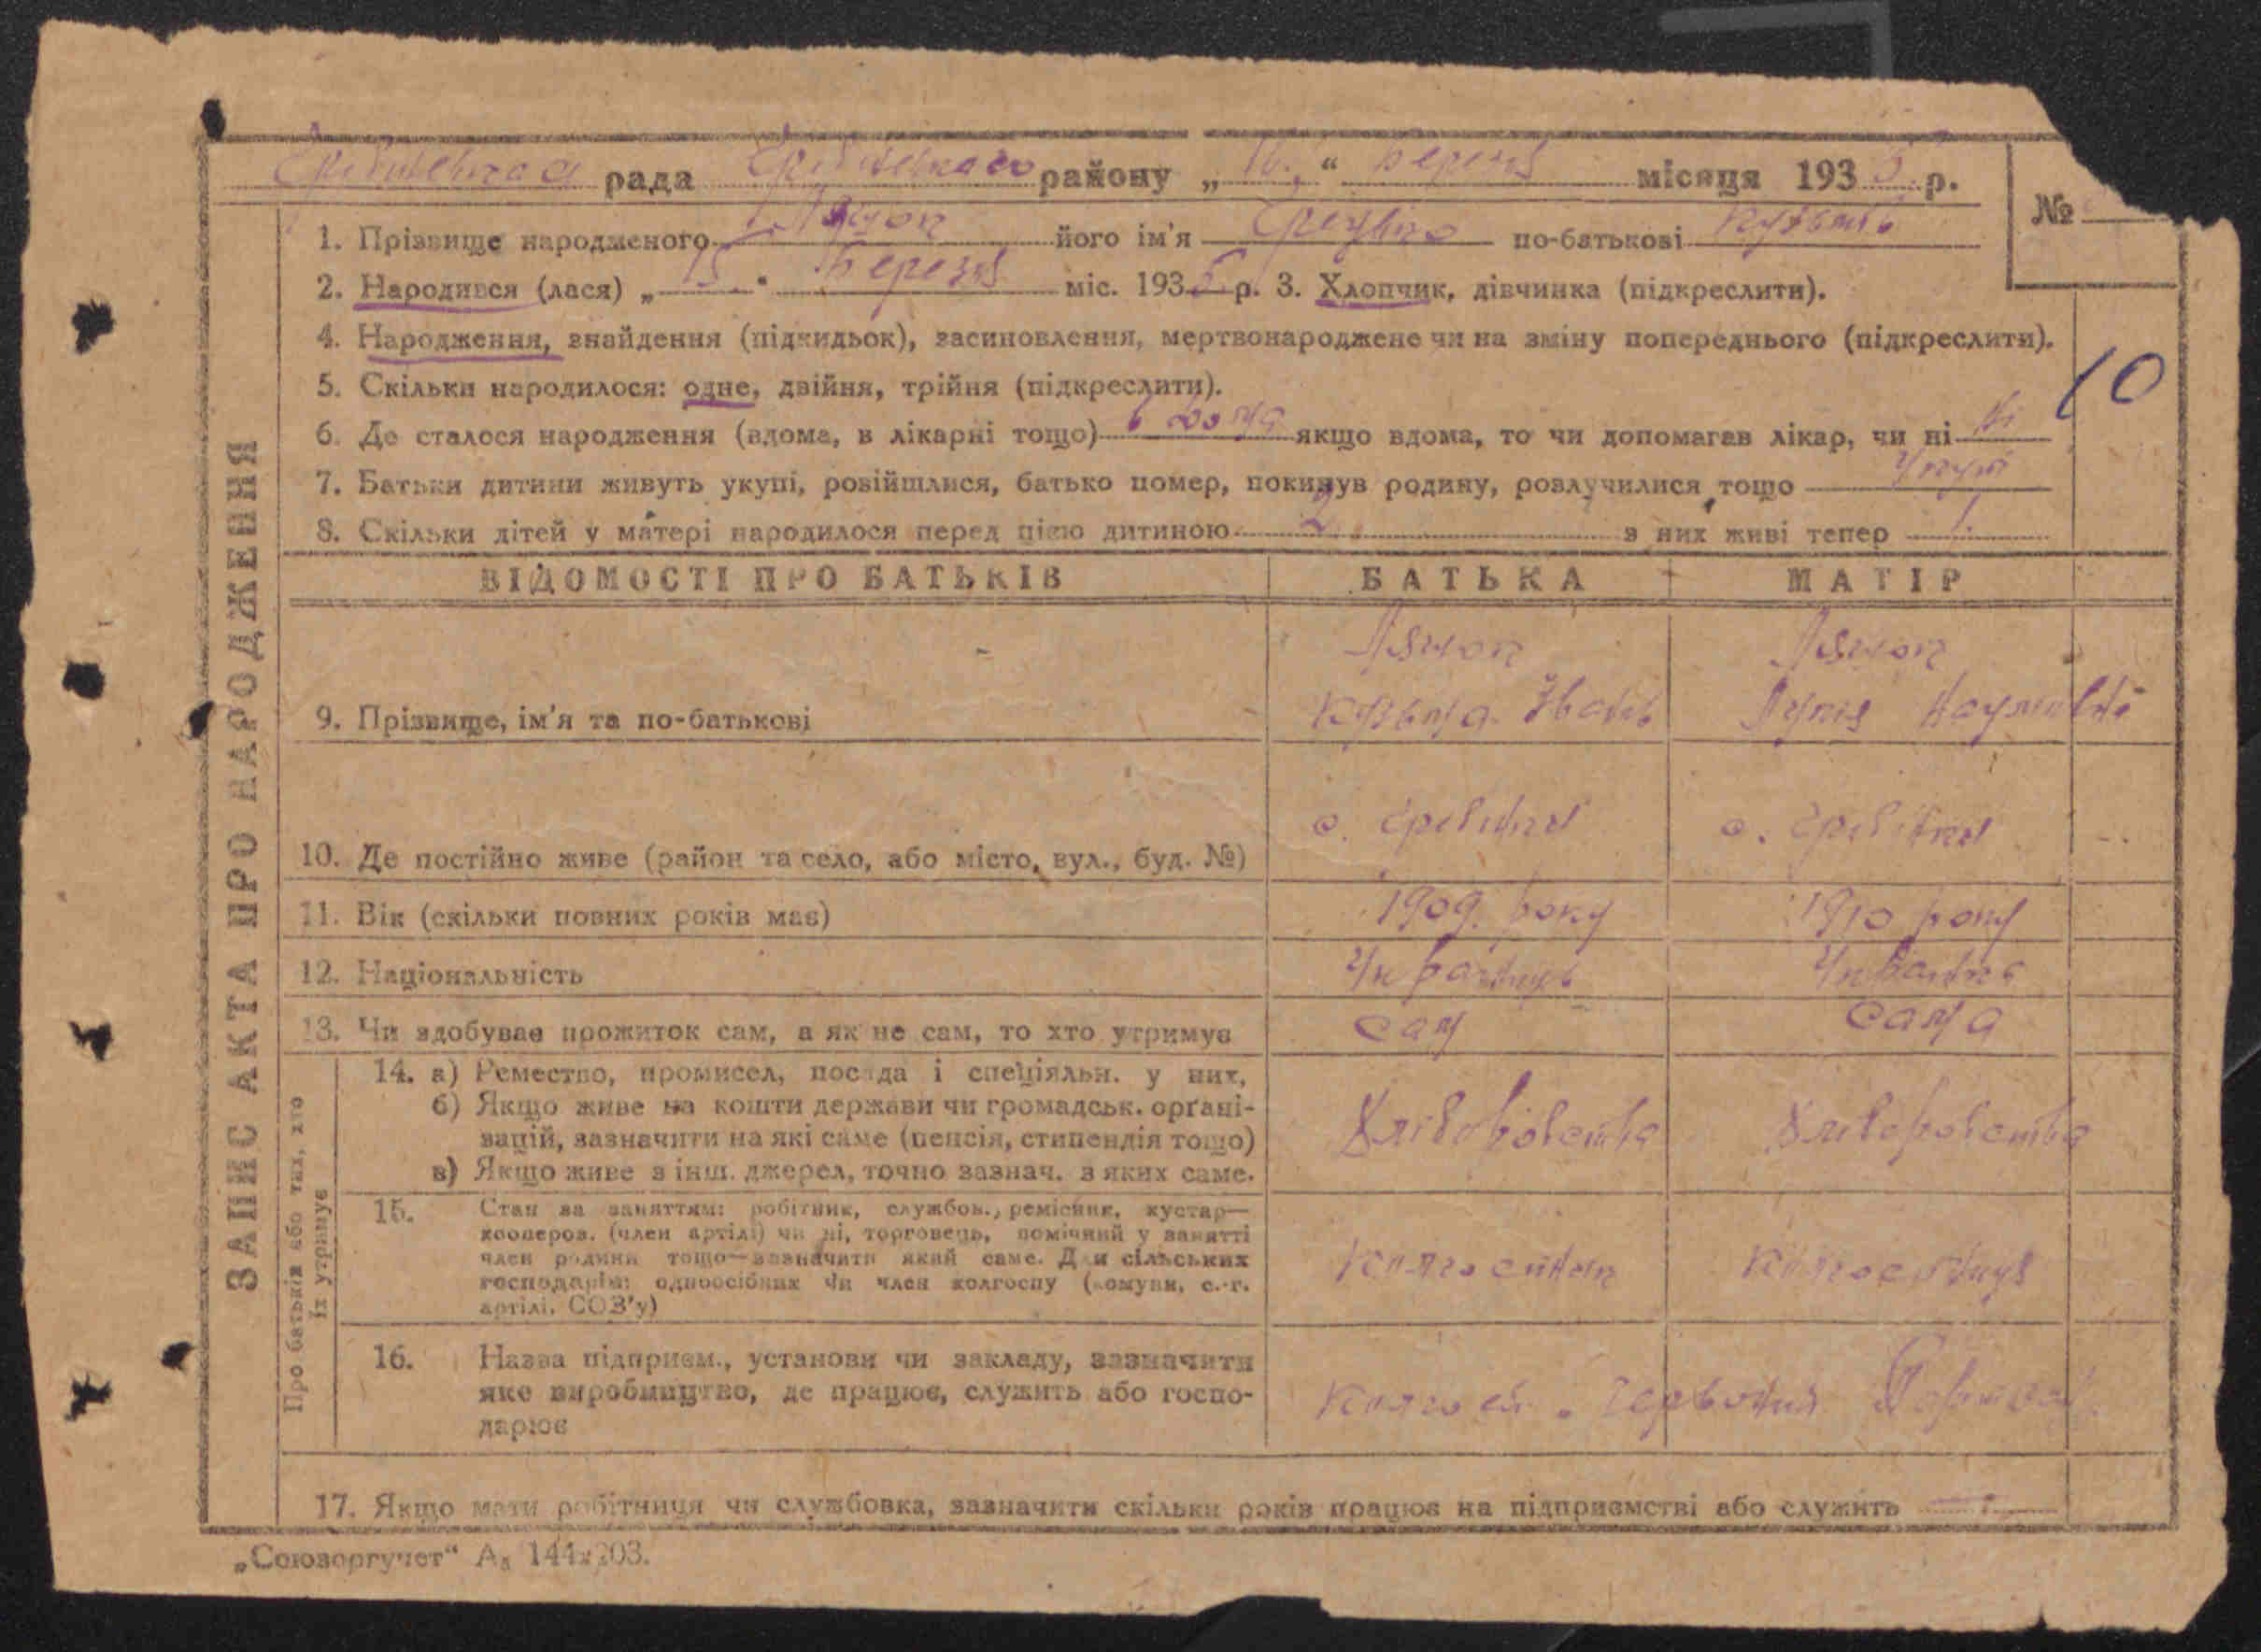 рада району „ “ березня місяця 193 5 р.
№
1. Прізвище народженого Ляшок його ім'я по-батькові Кузьмів
2. Народився (лася) „ 15 " березня міс. 193 5 р. 3. Хлопчик, дівчинка (підкреслити).
4. Народження, знайдення (підкидьок), засиновлення, мертвонароджене чи на зміну попереднього (підкреслити).
10
5. Скільки народилося: одне, двійня, трійня (підкреслити).
6. Де сталося народження (вдома, в лікарні тощо) в дома якщо вдома, то чи допомагав лікар, чи ні Ні
7. Батьки дитини живуть укупі, розійшлися, батько помер, покинув родину, розлучилися тощо Укупі
8. Скільки дітей у матері народилося перед цією дитиною 2 з них живі тепер 1
ЗАПИС АКТА ПРО НАРОДЖЕННЯ
ВІДОМОСТІ ПРО БАТЬКІВ БАТЬКА МАТІР
Ляшок Ляшок
9. Прізвище, ім'я та по-батькові Кузьма Іванів Наумівні
с. Гребінки с. Гребінки
10. Де постійно живе (район та село, або місто, вул., буд. №)
11. Вік (скільки повних років має) 1909. року 1910 року
12. Національність Українець Українка
13. Чи здобуває прожиток сам, а як не сам, то хто утримує сам сама
Про батьків або тих, хто їх утримує
14. а) Ремество, промисел, посада і спеціяльн. у них,
б) Якщо живе на кошти держави чи громадськ. орґані-
зацій, зазначити на які саме (пенсія, стипендія тощо) Хліборобства Хліборобства
в) Якщо живе з інш. джерел, точно зазнач. з яких саме.
15. Стан за заняттям: робітник, службов., ремісник, кустар—
кооперов. (член артілі) чи ні, торговець, помічний у занятті
член родини тощо—зазначити який саме. Для сільських
господарів: одноосібник чи член колгоспу (комуни, с.-г. Колгоспник Колгоспниця
артілі, СОЗ'у)
16. Назва підприєм., установи чи закладу, зазначити
яке виробництво, де працює, служить або госпо- Колгосп Червоний
дарює
17. Якщо мати робітниця чи службовка, зазначити скільки років працює на підприємстві або служить —
„Союзоргучет“